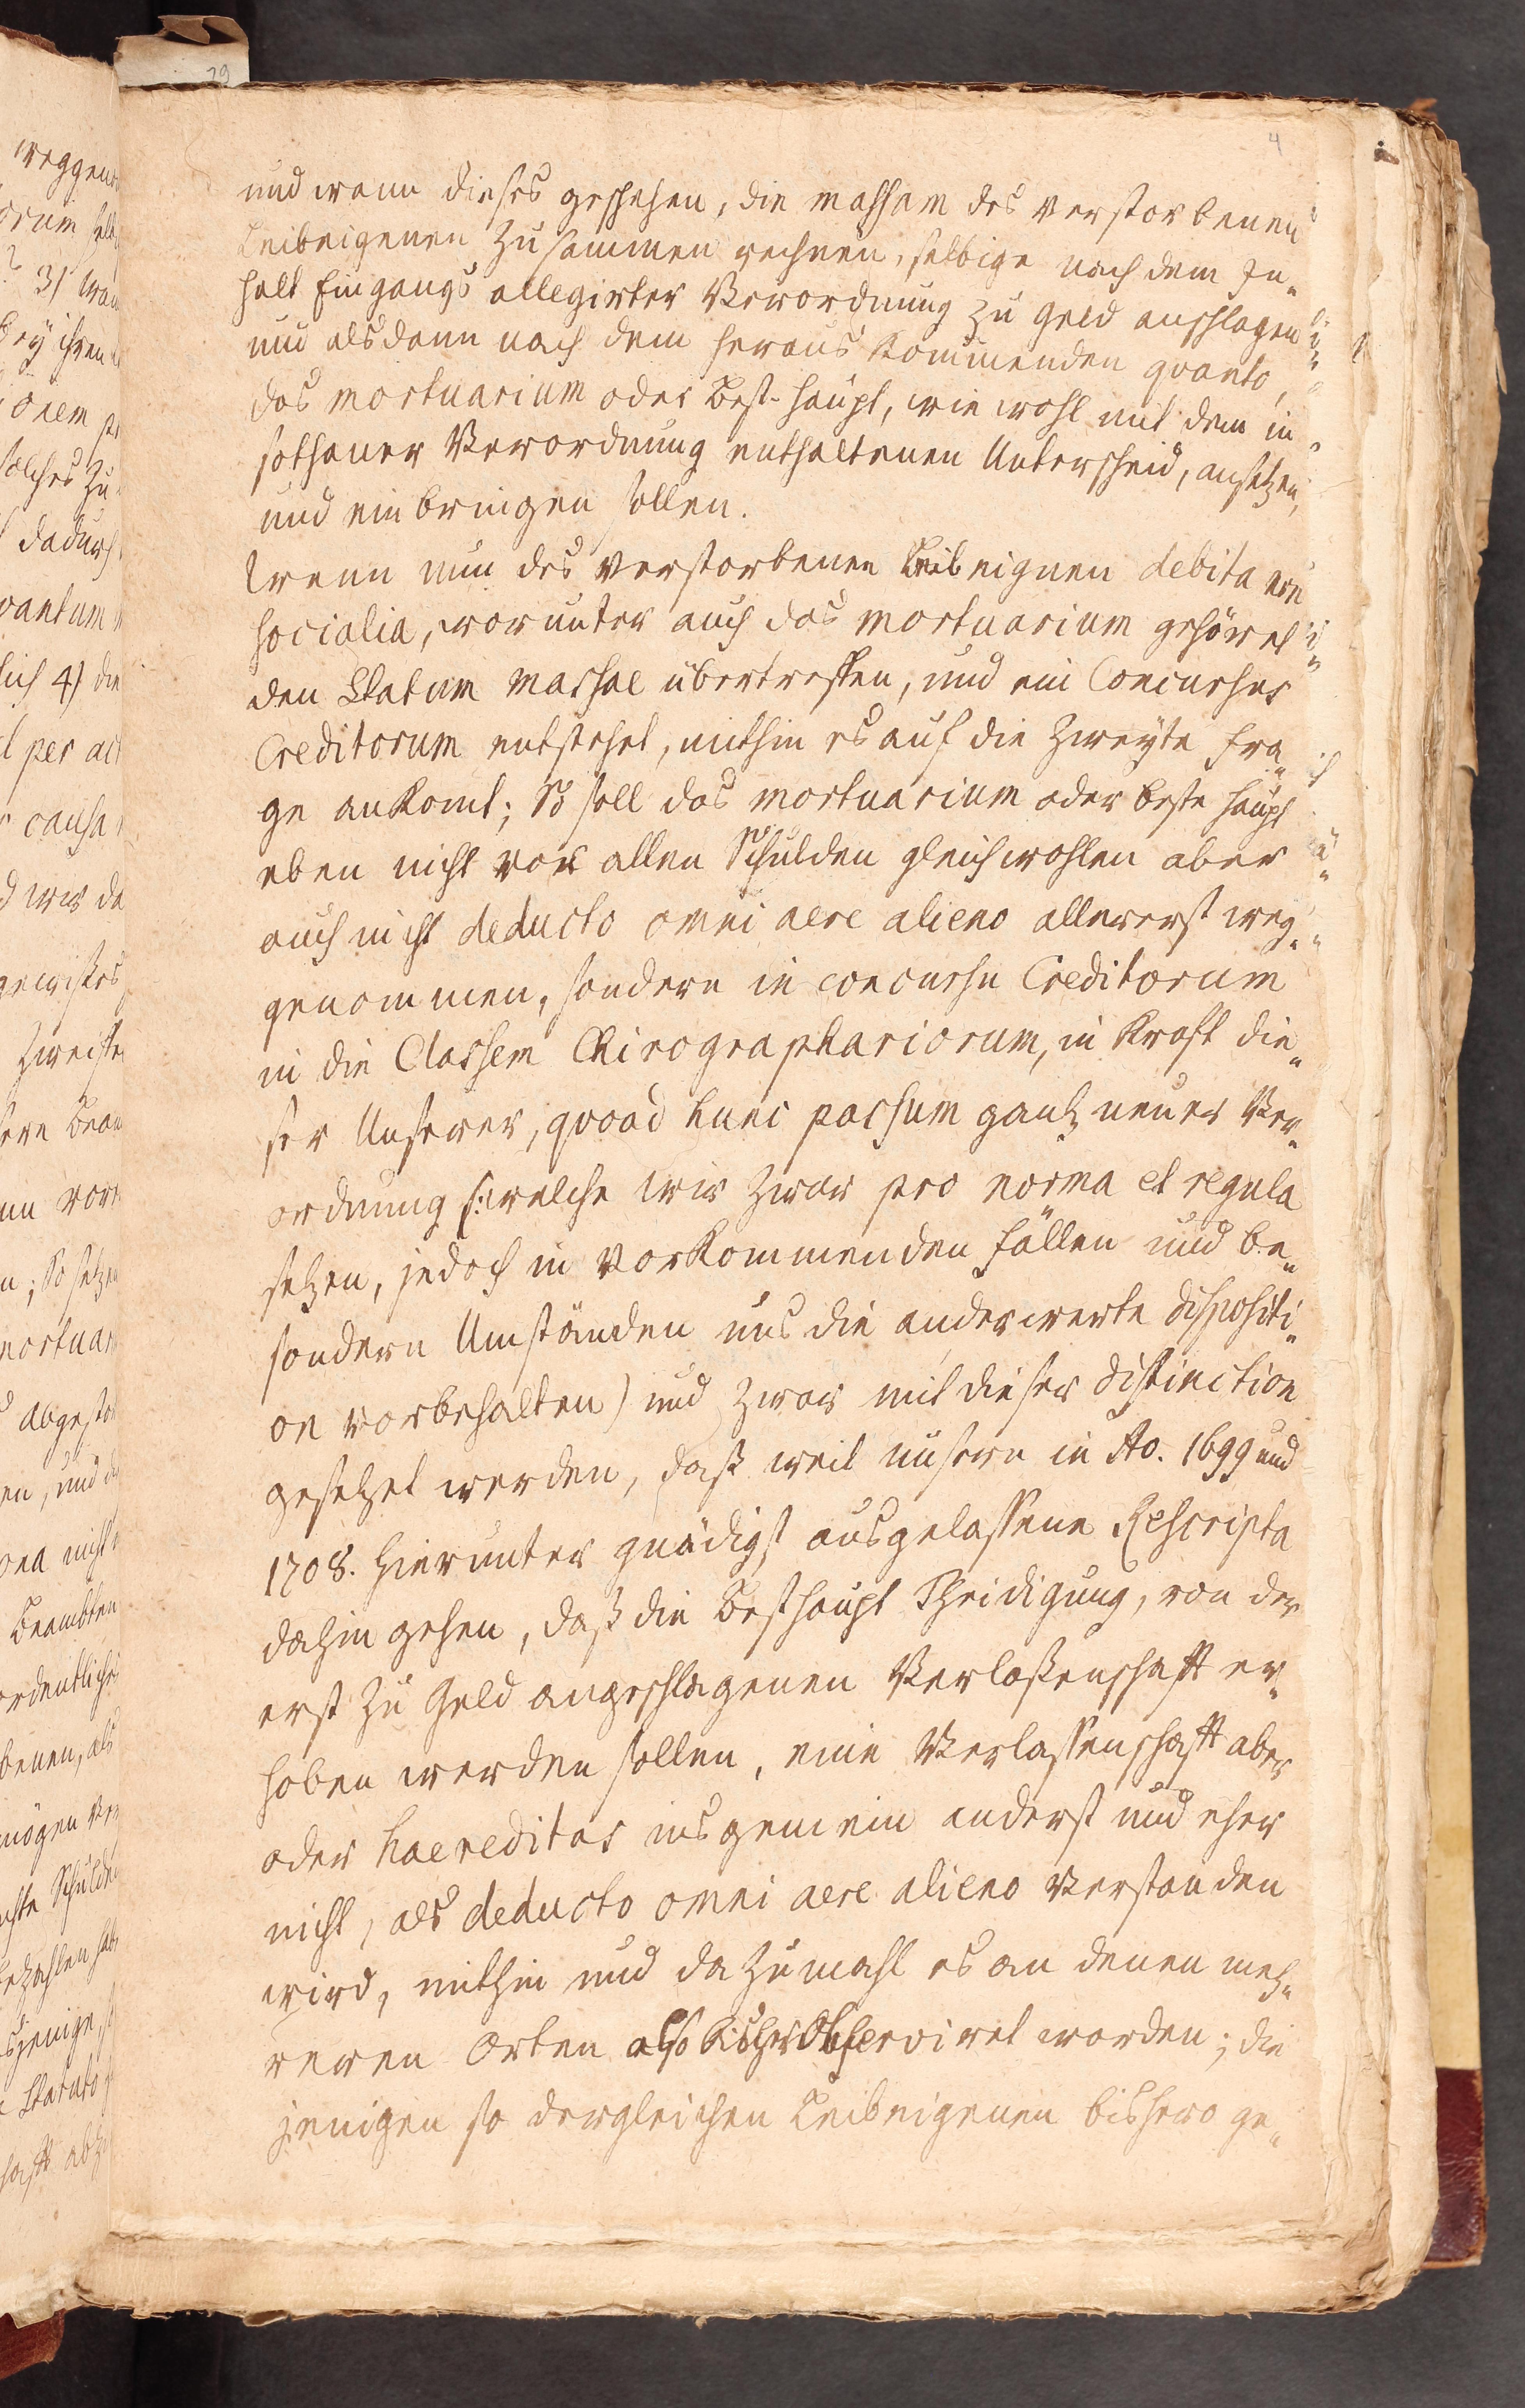 4
und wann dieses geschehen, die massam des verstorbenen
Leibeigenen zusammen rechnen, selbige nach dem In„
halt Eingangs allegirter Verordnung zu geld anschlagen
und alsdann nach dem heraus kommenden quanto,
das mortuarium oder Best-haupt, wie wohl mit dem in
sothaner Verordnung enthaltenen Unterscheid, ansetzen,
und einbringen sollen.
Wenn nun des verstorbenen Leibeignen debita non
socialia, worunter auch das mortuarium gehöret
den Statum massae übertreffen, und ein Concursus
Creditorum entstehet, mithin es auf die Zweyte Fra„
ge ankomt; So soll das mortuarium oder beste haupt
eben nicht vor allen Schulden gleichwohlen aber
auch nicht deducto omni aere alieno allererst weg„
genommen, sondern in concursu Creditorum
in die Classem Chirographariorum, in Kraft die„
ser Unserer, quoad hunc passum gantz neuer Ver„
ordnung (: welche wir zwar pro norma et regula
setzen, jedoch in vorkommenden fällen und be„
sondern Umständen uns die anderwerte dispositi„
on vorbehalten) und zwar mit dieser distinction
gesetzet werden, daß weil unsere in Ao. 1699 und
1708. hierunter gnädigst ausgelassene Rescripta
dahin gehen, daß die Besthaupt Theidigung, von der
erst zu Geld angeschlagenen Verlaßenschafft er„
hoben werden sollen, eine Verlassenschafft aber
oder haereditas insgemein anderst und eher
nicht, als deducto omni aere alieno verstanden
wird, mithin und da zumahl es an denen meh„
reren Orten also bisher observiret worden; die
jenigen so dergleichen Leibeigenen bishero ge„